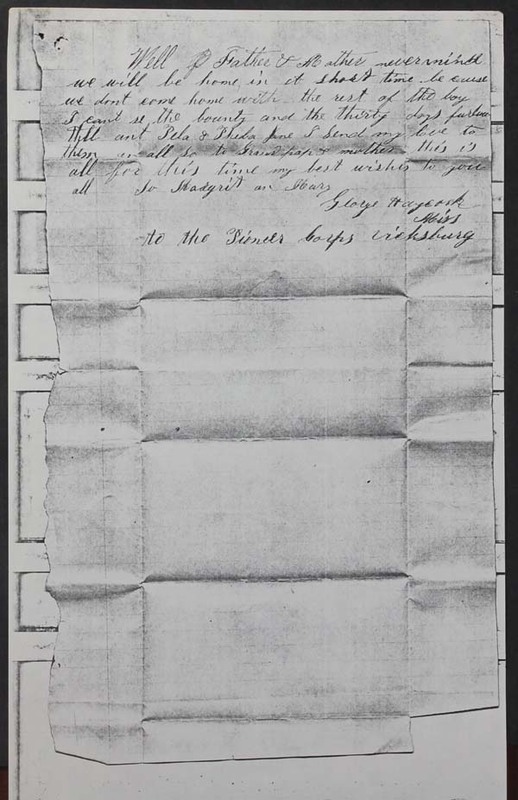 Well Father & Mother never mind
we will be home in a short time be cause
we dont come home with the rest of the boy
I cant se the bounty and the thirty days furlow
Till ant & I send my love to
them an all so to Grand papa & mother this is
all for this time my best wishes to you
all So an Mary
George Haycock
Miss
to the Pioneer Corps vicksburg